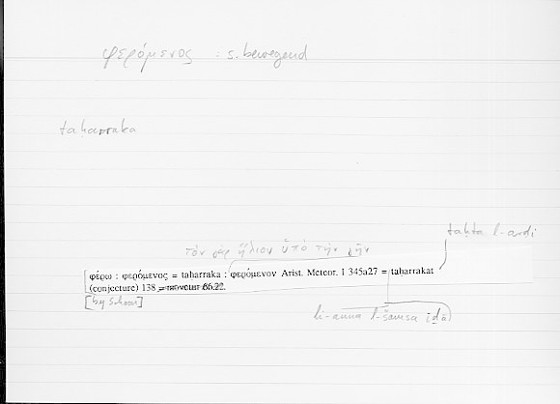 φερόμενος = s. bewegend
taḥarraka
taḥta l-arḍi
τὸν γὰρ ἥλιον ὑπὸ τὴν γῆν
φέρω : φερόμενος = taḥarraka : φερόμενον Arist. Meteor. I 345a27 = taḥarrakat
(conjecture) 138
[by Schoon]
li-anna l-šamsa iḏā